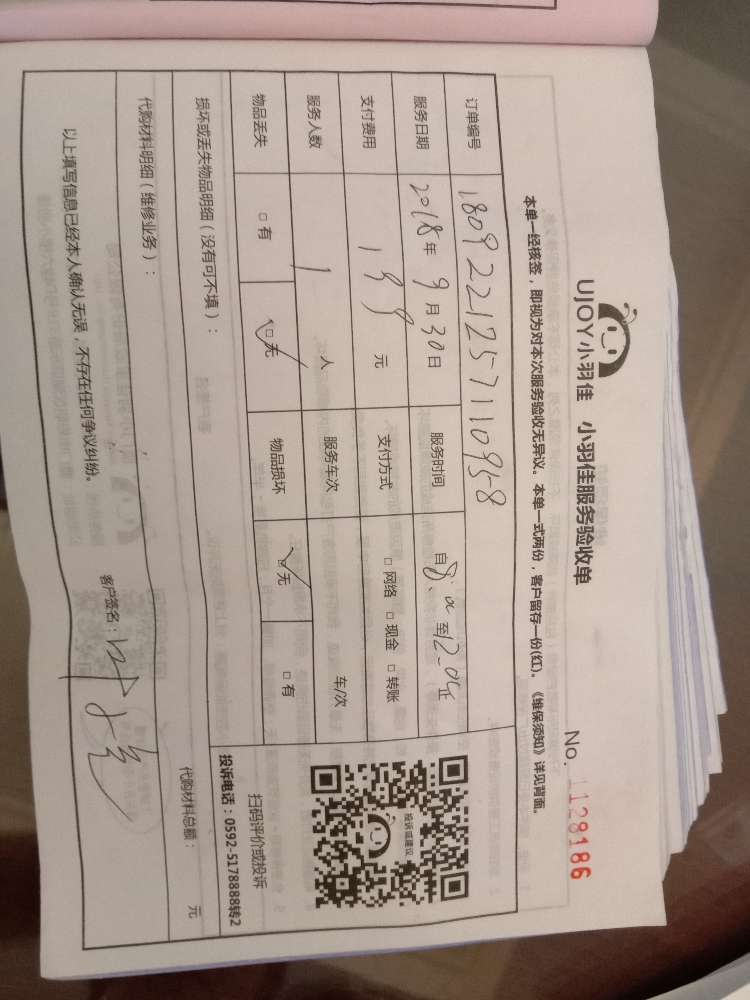 UJOY小羽佳 小羽佳服务验收单
No. 1128186
本单一经核签，即视为对本次服务验收无异议。本单一式两份，客户留存一份(红)。《维保须知》详见背面。
订单编号 180922125711095-8
服务日期 2018年 9月30日 服务时间 自8:00至12:00
支付费用 199 元 支付方式 □ 网络 □ 现金 □ 转账
服务人数 1 人 服务车次 车/次
物品丢失 □ 有 ☑ 无 物品损坏 ☑ 无 □ 有
投诉或建议
扫码评价或投诉
投诉电话：0592-5178888转2
损坏或丢失物品明细（没有可不填）：
代购材料明细（维修业务）：
代购材料总额： 元
以上填写信息已经本人确认无误，不存在任何争议纠纷。
客户签名：